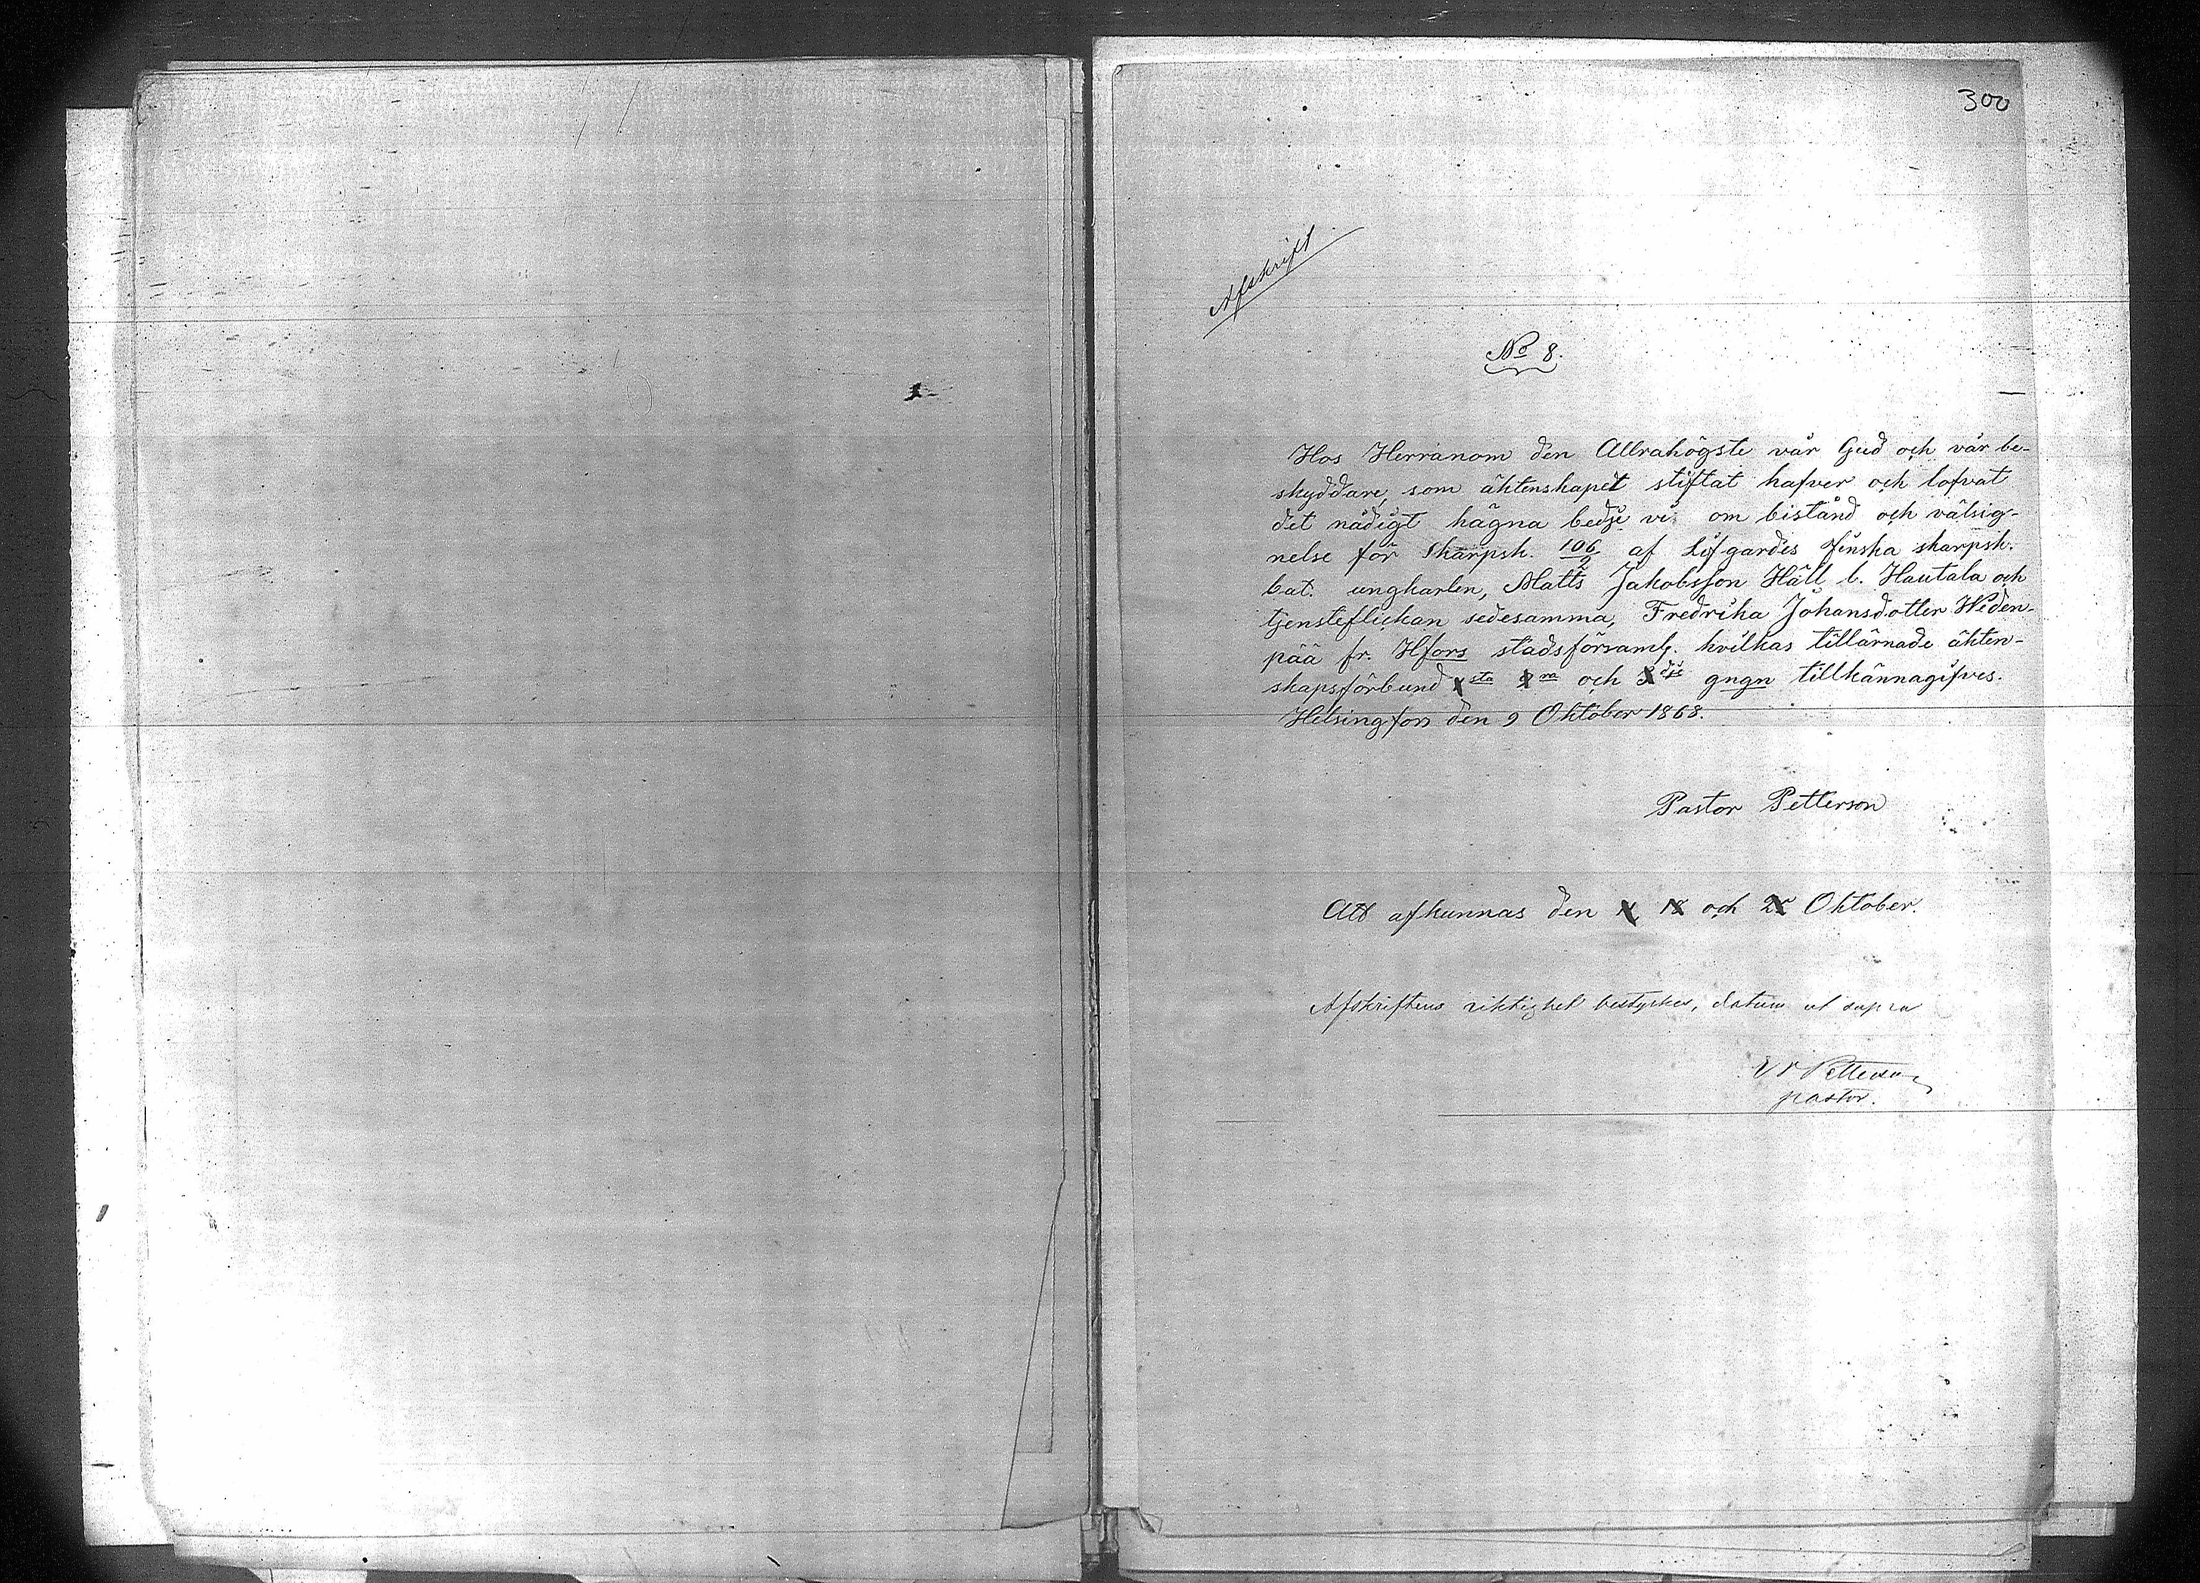 300
Afskrift.
No 8.
Hos Herranom den Allrahögste vår Gud och vår be-
skyddare, som äktenskapet stiftat hafver och lofvat
det nådigt hägna bedje vi om bistånd och välsig-
nelse för Skarpsk. 106/2 af Lifgardis finska skarpsk.
bat. ungkarlen, Matts Jakobsson Häll l. Hautala och
tjensteflickan sedesamma, Fredrika Johansdotter Widen-
pää fr. Hfors stadsförsaml. hvilkas tillärnade äkten-
skapsförbund 1sta 2ra och 3dje gngn tillkännagifves.
Helsingfors den 9 Oktober 1868.
Pastor Petterson
Att afkunnas den 11, 18 och 25 Oktober.
Afskriftens riktighet bestyrkes, datum ut supra
Petterson
pastor.